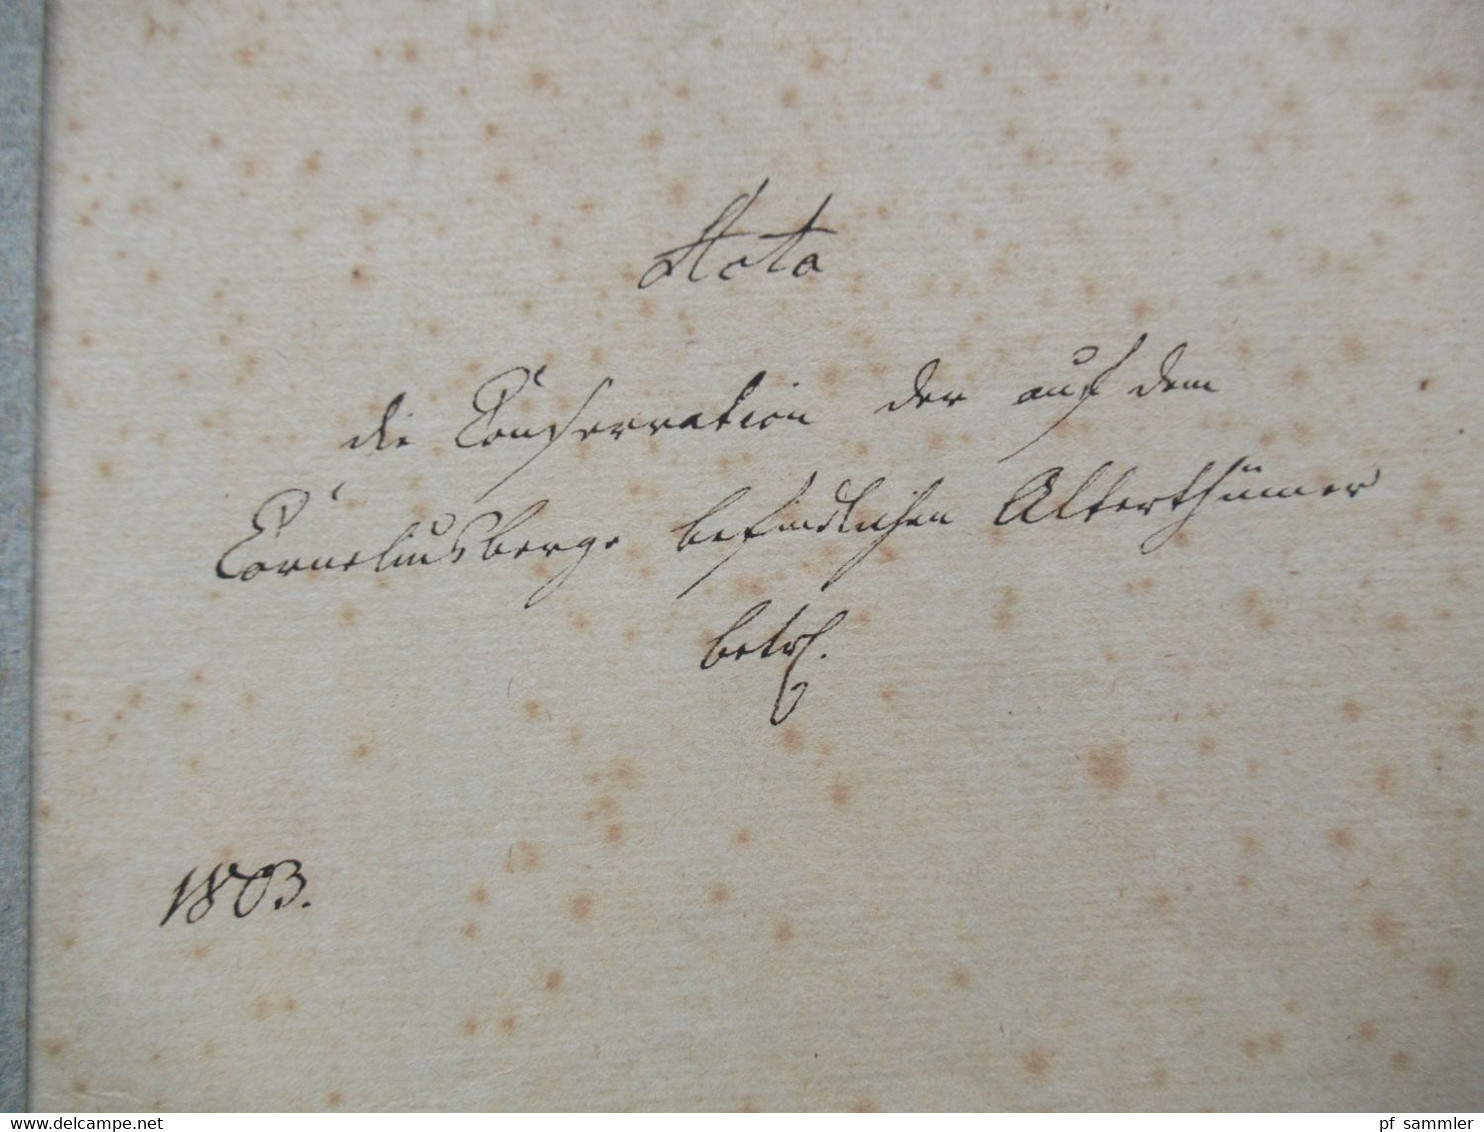 Acta
die Conservation der auf dem
Corneliusberge befindlichen Alterthümer
betrf.
1803.
delcampe.com
pf sammler